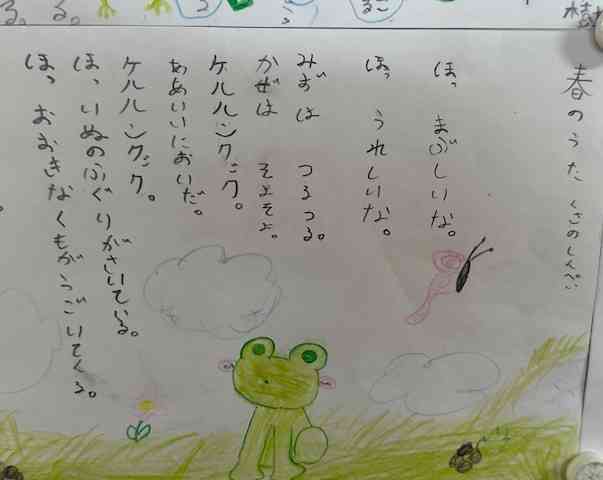 春のうた くさのしんぺい
ほっ まぶしいな。
ほっ うれしいな。
みずは つるつる。
かぜは そよそよ。
ケルルンクック。
ああいいにおいだ。
ケルルンクック。
ほっ いぬのふぐりがさいている。
ほっ おおきなくもがうごいてくる。